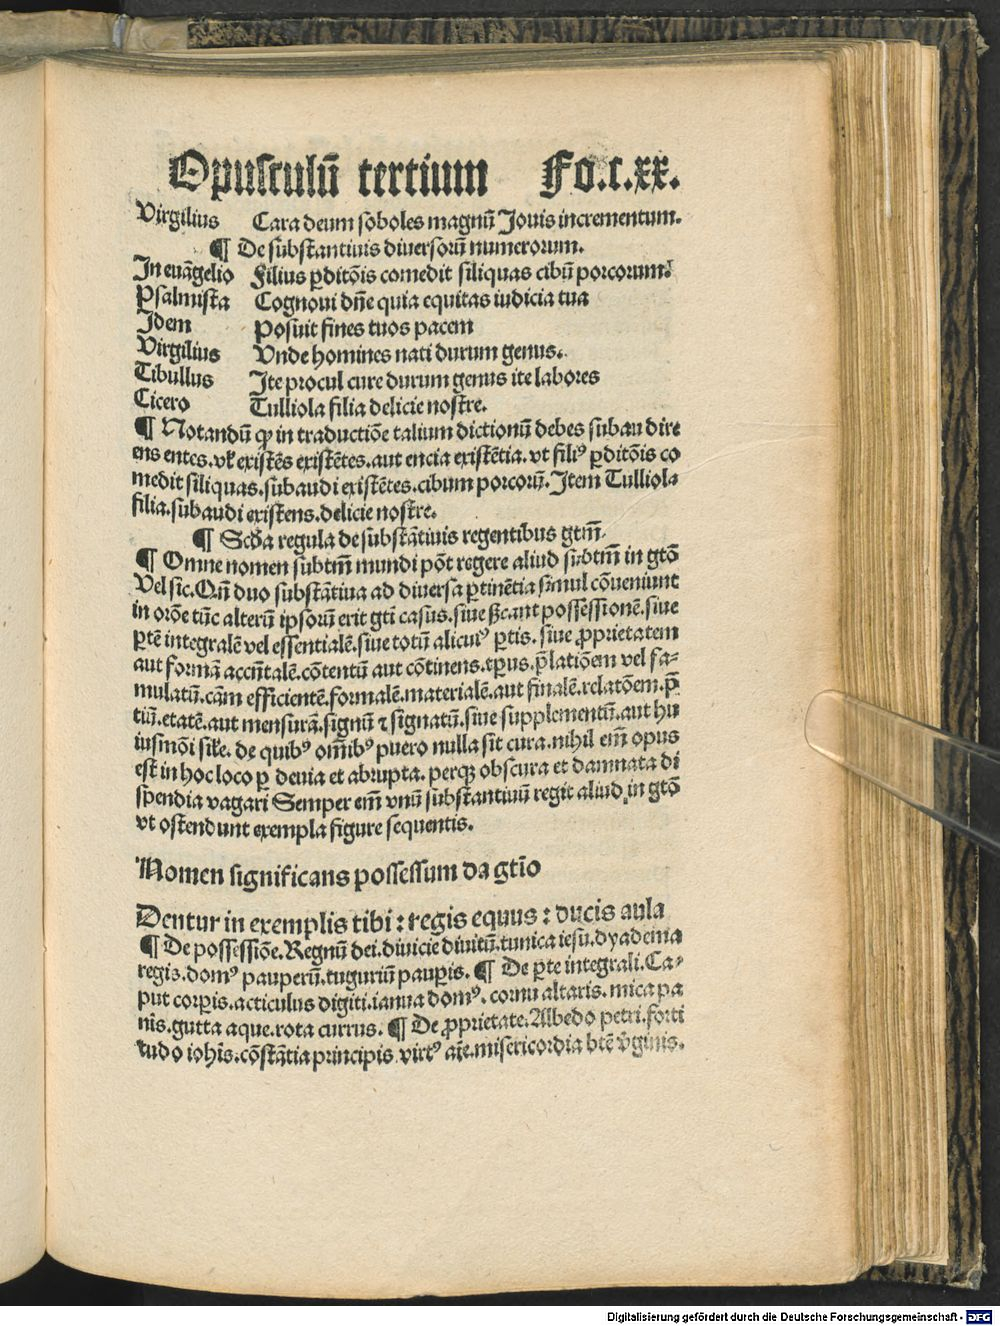 Opusculū tertium Fo.c.xx.
Virgilius Cara deum soboles magnū Jouis incrementum.
¶ De substantiuis diuersorū numerorum.
In euāgelio Filius ꝑditōis comedit siliquas cibū porcorum.
Psalmista Cognoui dn̄e quia equitas iudicia tua
Idem Posuit fines tuos pacem
Virgilius Vnde homines nati durum genus.
Tibullus Ite procul cure durum genus ite labores
Cicero Tulliola filia delicie nostre.
¶ Notandū ꝙ in traductiōe talium dictionū debes subaudire
ens entes. vĺ existēs existētes. aut encia existētia. vt filiꝰ ꝑditōis co
medit siliquas. subaudi existētes. cibum porcorū. Item Tulliola
filia. subaudi existens. delicie nostre.
¶ Scďa regula de substātiuis regentibus gtm̄.
¶ Omne nomen subtm̄ mundi pōt regere aliud subtm̄ in gtō
Vel sic. Qn̄ duo substātiua ad diuersa ꝑtinētia simul cōueniunt
in orōe tūc alterū ipsorū erit gtī casus. siue ſꝫcant possessionē. siue
ꝑtē integralē vel essentialē. siue totū alicuiꝰ ꝑtis. siue ꝓprietatem
aut formā accn̄talē. cōtentū aut cōtinens. tꝑus. p̄latiōem vel fa-
mulatū. cām efficientē. formalē. materialē. aut finalē. relatōem. p̄
tiū. etatē. aut mensurā. signū ⁊ signatū. siue supplementū. aut hu
iusmōi siĺe. de quibꝰ om̄ibꝰ puero nulla sit cura. nihil em̄ opus
est in hoc loco ꝑ deuia et abrupta. perqꝫ obscura et damnata di
spendia vagari Semper em̄ vnū substantiuū regit aliud in gtō
vt ostendunt exempla figure sequentis.
Nomen significans possessum da gtīo
Dentur in exemplis tibi : regis equus : ducis aula
¶ De possessiōe. Regnū dei. diuicie diuitū. tunica iesu. dyadema
regis. domꝰ pauperū. tuguriū pauꝑis. ¶ De ꝑte integrali. Ca-
put corꝑis. acticulus digiti. ianua domꝰ. cornu altaris. mica pa
nis. gutta aque. rota currus. ¶ De ꝓprietate. Albedo petri. forti
tudo ioh̄is. cōstātia principis virtꝰ aīe. misericordia btē v̄ginis.
Digitalisierung gefördert durch die Deutsche Forschungsgemeinschaft - DFG